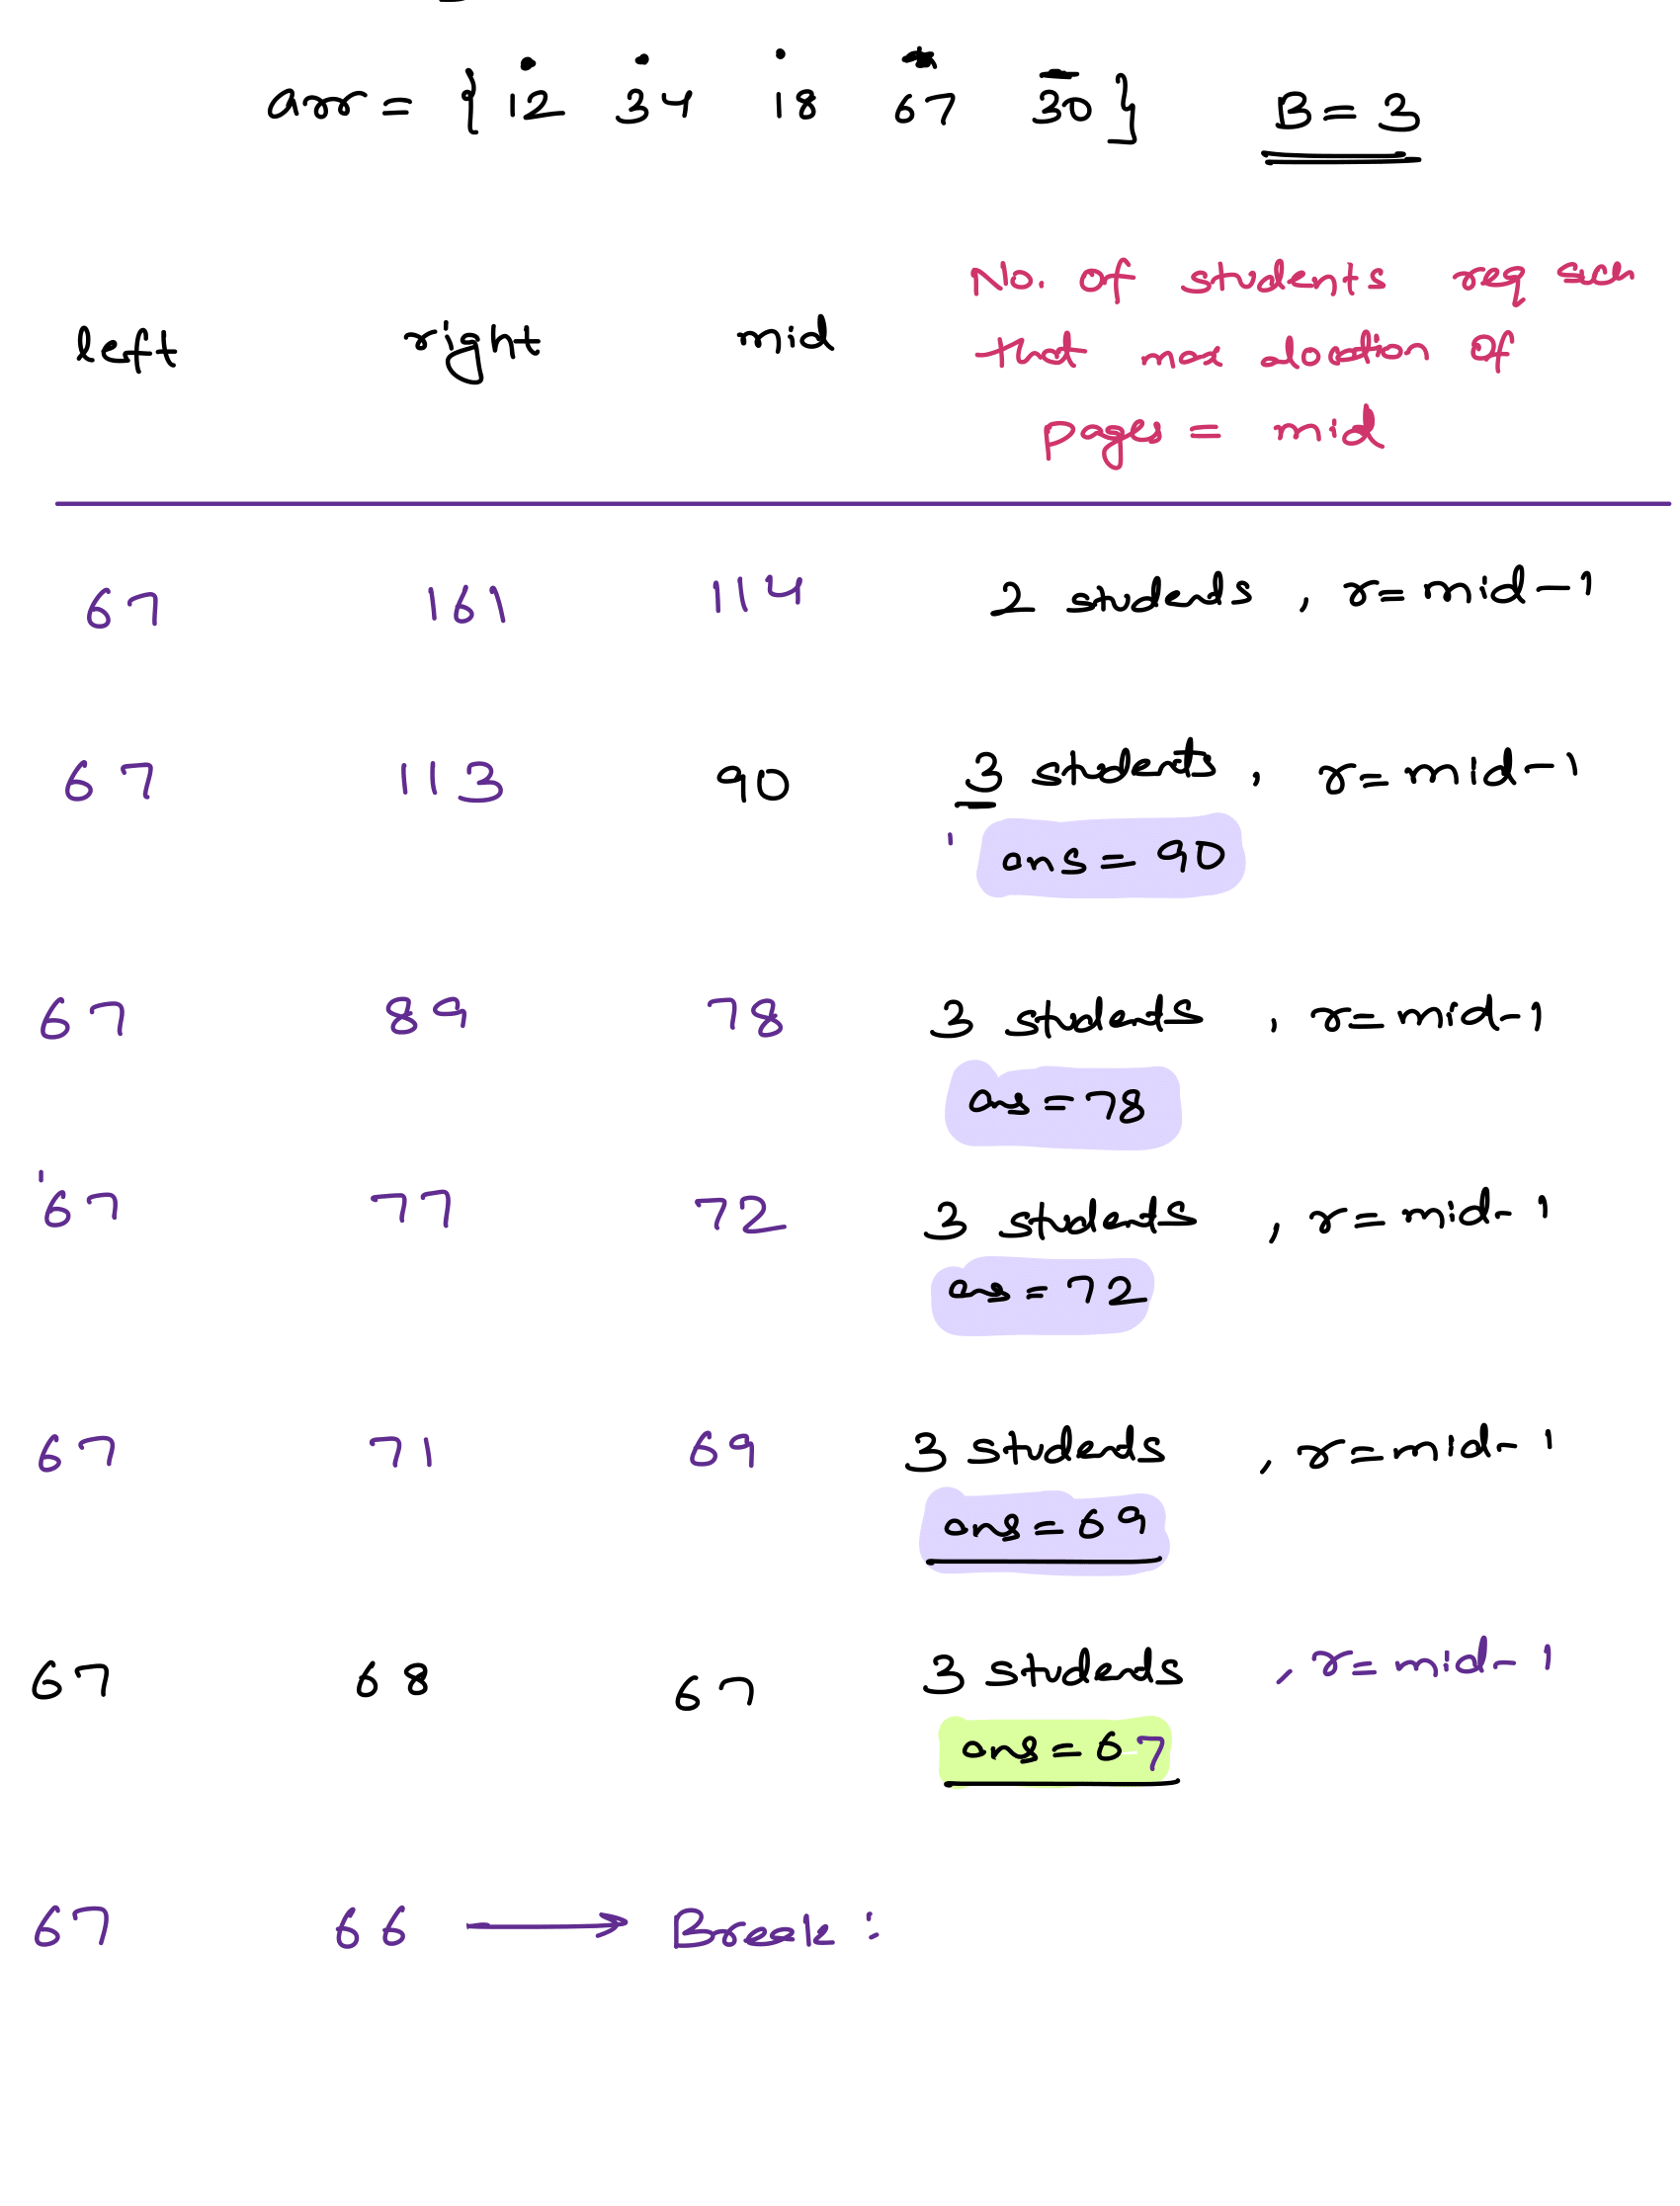 arr = { 12 34 18 67 30 } B = 3
No. of students req such
left right mid that max alocation of
pages = mid
67 161 114 2 students , r = mid - 1
67 113 90 3 students , r = mid - 1
ans = 90
67 89 78 3 students , r = mid - 1
ans = 78
67 77 72 3 students , r = mid - 1
ans = 72
67 71 69 3 students , r = mid - 1
ans = 69
67 68 67 3 students , r = mid - 1
ans = 67
67 66 → Break :